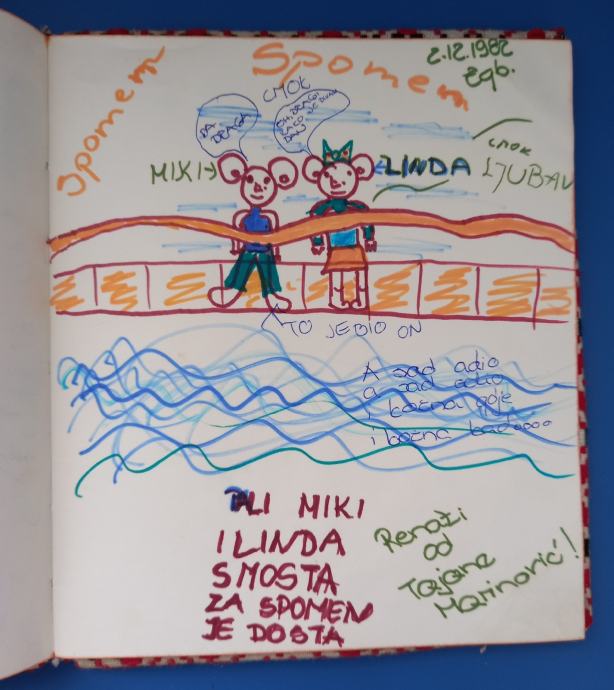 Spomen
Spomen
2.12.1982
Zgb.
CMOK
DA
DRAGA
OH, DRAGI
DAN
MIKI
LINDA
CMOK
LJUBAV
TO JE BIO ON
A sad adio
a sad adio
i kozna gdje
i kozna kadoooo
PALI MIKI
I LINDA
S MOSTA
ZA SPOMEN
JE DOSTA
Renati
od
Tajane
Marinović!